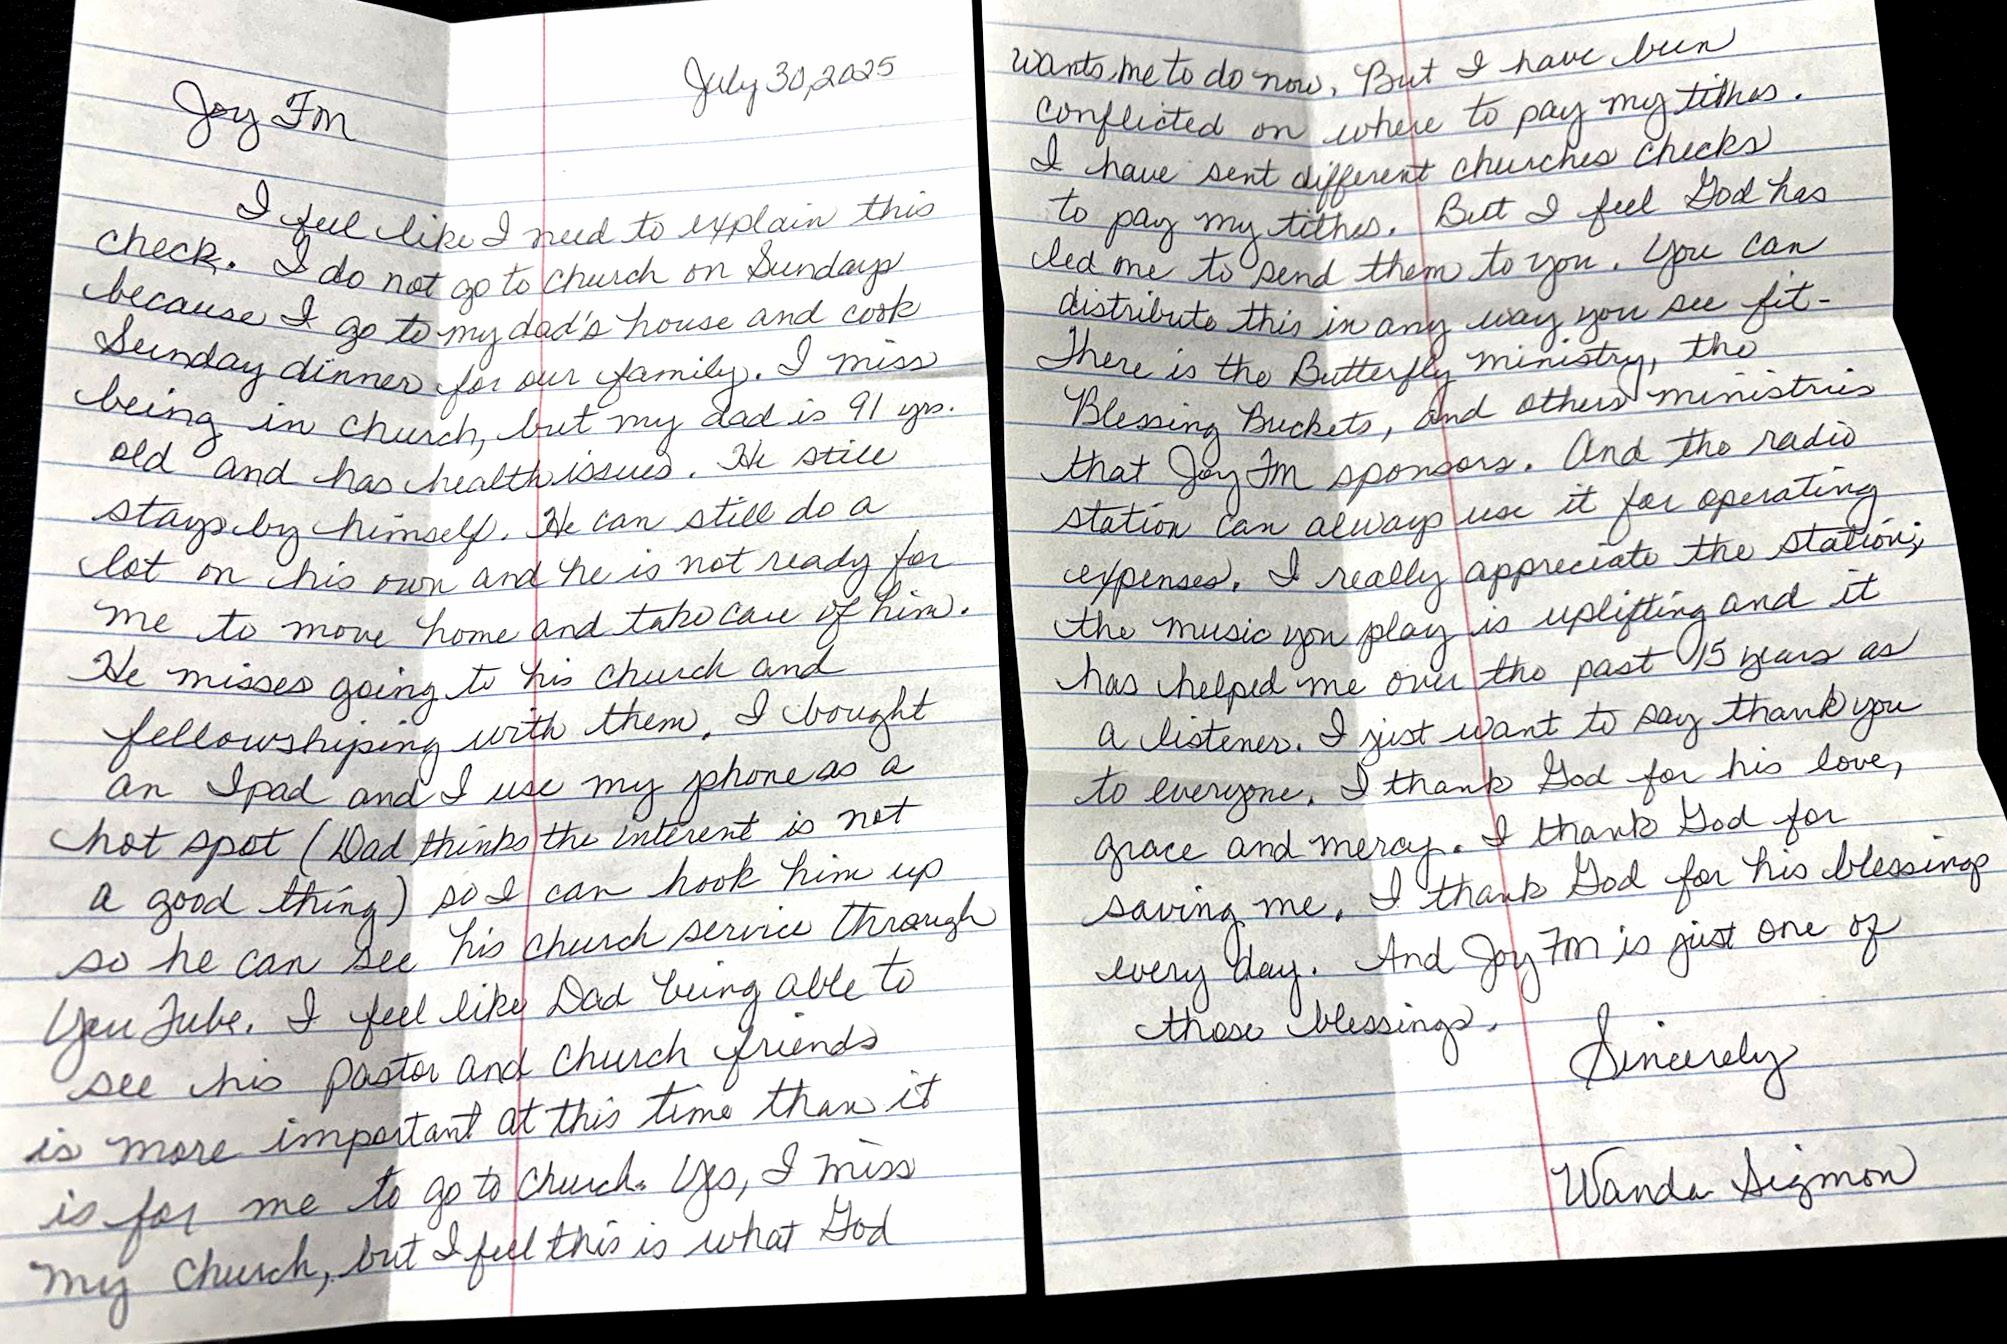 July 30, 2025
Joy FM
I feel like I need to explain this
check. I do not go to church on Sundays
because I go to my dad's house and cook
Sunday dinner for our family. I miss
being in church, but my dad is 91 yrs.
old and has health issues. He still
stays by himself. He can still do a
lot on his own and he is not ready for
me to move home and take care of him.
He misses going to his church and
fellowshiping with them. I bought
an Ipad and I use my phone as a
hot spot (Dad thinks the interent is not
a good thing) so I can hook him up
so he can see his church service through
You Tube. I feel like Dad being able to
see his pastor and church friends
is more important at this time than it
is for me to go to church. Yes, I miss
my church, but I feel this is what God
wants me to do now. But I have been
conflicted on where to pay my tithes.
I have sent different churches checks
to pay my tithes. But I feel God has
led me to send them to you. You can
distribute this in any way you see fit-
There is the Butterfly ministry, the
Blessing Buckets, and others ministries
that Joy FM sponsors. And the radio
station can always use it for operating
expenses. I really appreciate the station;
the music you play is uplifting and it
has helped me over the past 15 years as
a listener. I just want to say thank you
to everyone. I thank God for his love,
grace and mercy. I thank God for
saving me. I thank God for his blessings
every day. And Joy FM is just one of
those blessings.
Sincerely
Wanda Sigmon